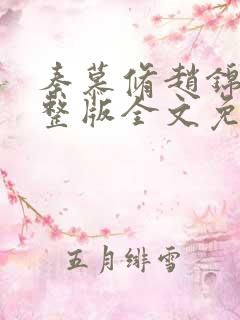 秦慕脩赵锦
整版全文免
五月绯雪